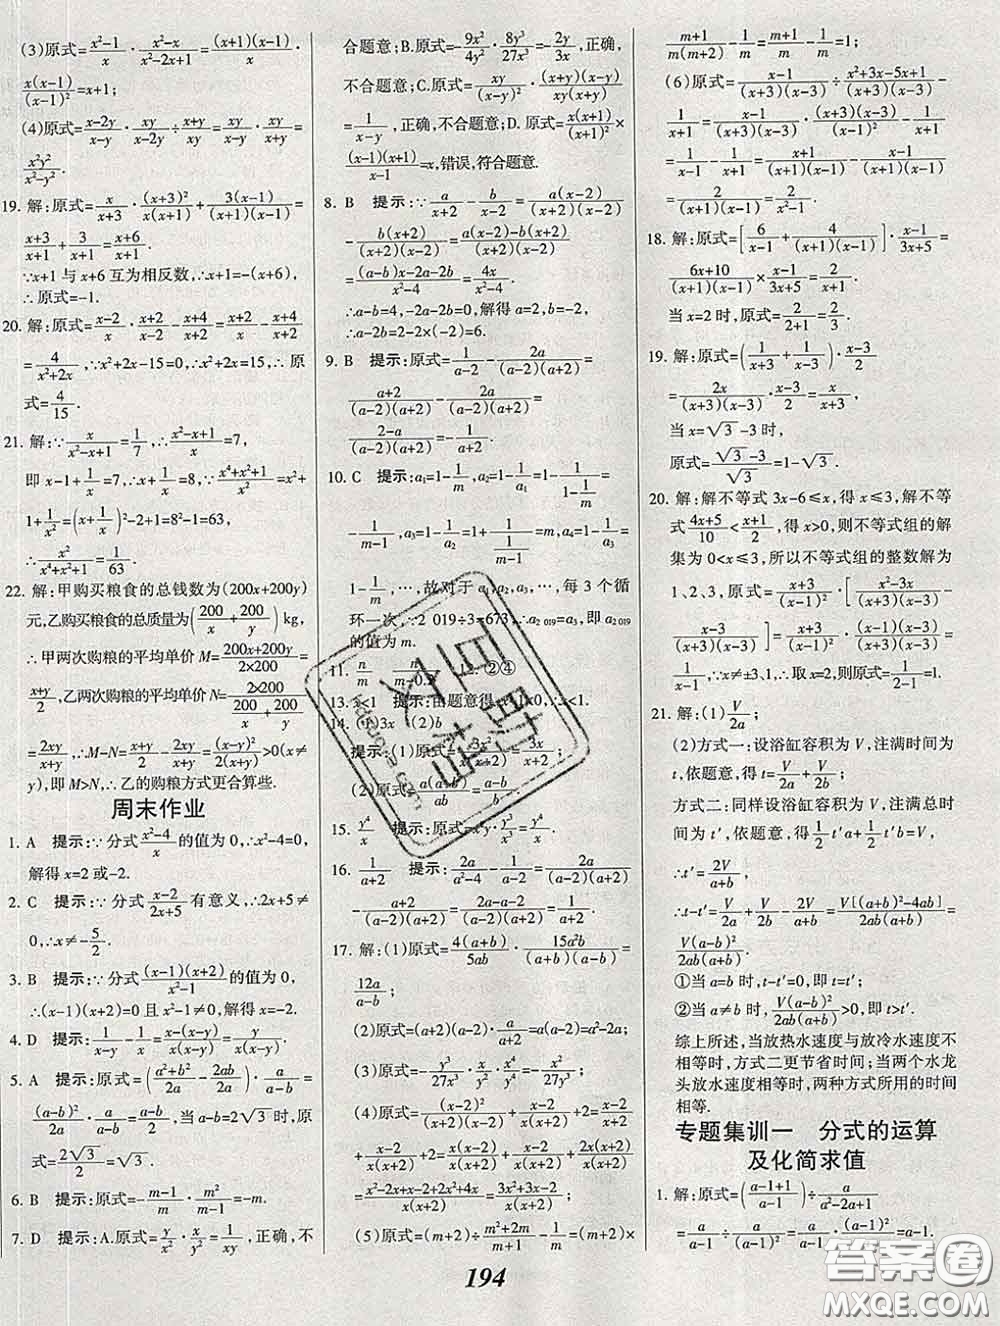 (3)原式=(x²-1)/x·(x²-x)/(x²-2x+1)=(x+1)(x-1)/x·
x(x-1)/(x-1)²=x+1;
(4)原式=(x-2y)/(x-y)·xy/(x-2y)÷(x+y)/xy=xy/(x-y)·xy/(x+y)=
x²y²/(x²-y²).
19. 解:原式=x/(x+3)·(x+3)²/x(x+1)+3(x-1)/(x+1)(x-1)=
(x+3)/(x+1)+3/(x+1)=(x+6)/(x+1).
∵x+1 与 x+6 互为相反数,∴x+1=-(x+6),
∴原式=-1.
20. 解:原式=(x-2)/x·(x+2)/(x-2)-(x+4)/(x+2)=(x+2)/x-(x+4)/(x+2)
=4/(x²+2x),∵x²+2x-15=0,∴x²+2x=15,∴原
式=4/15.
21. 解:∵x/(x²-x+1)=1/7,∴(x²-x+1)/x=7,
即 x-1+1/x=7,∴x+1/x=8,∵(x⁴+x²+1)/x²=x²+
1+1/x²=(x+1/x)²-2+1=8²-1=63,
∴x²/(x⁴+x²+1)=1/63.
22. 解:甲购买粮食的总钱数为(200x+200y)
元,乙购买粮食的总质量为(200/x+200/y) kg,
∴甲两次购粮的平均单价 M=(200x+200y)/(2×200)=
(x+y)/2,乙两次购粮的平均单价 N=(2×200)/(200/x+200/y)
=2xy/(x+y),∴M-N=(x+y)/2-2xy/(x+y)=(x-y)²/2(x+y)>0(x≠
y),即 M>N,∴乙的购粮方式更合算些.
周末作业
1. A 提示:∵分式(x²-4)/x的值为 0,∴x²-4=0,
解得 x=2 或-2.
2. C 提示:∵分式(x-2)/(2x+5)有意义,∴2x+5≠
0,∴x≠-5/2.
3. B 提示:∵分式(x-1)(x+2)/(x²-1)的值为 0,
∴(x-1)(x+2)=0 且 x²-1≠0,解得 x=-2.
4. D 提示:1/(x-y)-1/x=(x-(x-y))/x(x-y)=y/x(x-y).
5. A 提示:原式=((a²+b²)/2a-2ab/2a)·a/(a-b)
=(a-b)²/2a·a/(a-b)=(a-b)/2.当 a-b=2√3时,原
式=2√3/2=√3.
6. B 提示:原式=-(m-1)/m·m²/(m-1)=-m.
7. D 提示:A.原式=y/x²·x/y²=1/xy,正确,不
合题意;B.原式=-9x²/4y²·8y³/27x³=-2y/3x,正确,
不合题意;C.原式=xy/(x-y)²·(x+y)(x-y)/xy(x+y)
=1/(x-y),正确,不合题意;D.原式=x(x+1)/(x+1)²×
(x-1)(x+1)/(x-1)=x,错误,符合题意.
8. B 提示:∵a/(x+2)-b/(x-2)=a(x-2)/(x+2)(x-2)
-b(x+2)/(x+2)(x-2)=(a(x-2)-b(x+2))/(x+2)(x-2)=
((a-b)x-2a-2b)/(x²-4)=4x/(x²-4),
∴a-b=4,-2a-2b=0,解得 a=2,b=-2,
∴a-2b=2-2×(-2)=6.
9. B 提示:原式=1/(a-2)-2a/(a-2)(a+2)=
(a+2)/(a-2)(a+2)-2a/(a-2)(a+2)=
(2-a)/(a-2)(a+2)=-1/(a+2).
10. C 提示:a₁=1-1/m,a₂=1-1/a₁=1-1/(1-1/m)=
-1/(m-1),a₃=1-1/a₂=1+1/(1/(m-1))=m,a₄=1-1/a₃=
1-1/m,…,故对于 a₁,a₂,a₃,…,每 3 个循
环一次,∵2 019÷3=673,∴a₂₀₁₉=a₃,即 a₂₀₁₉
的值为 m.
11. n/m n/(m-0.2) 12. ②④
13. <1 提示:由题意得
14. (1)3x (2)b
提示:(1)原式=
(2)原式=a(a+b)/ab·(a-b)/(a+b)=(a-b)/b.
15. y⁴/x 提示:原式=x²y·y/x³=y⁴/x.
16. 1/(a+2) 提示:2a/(a²-4)-1/(a-2)=2a/(a-2)(a+2)
-(a+2)/(a-2)(a+2)=(2a-a-2)/(a-2)(a+2)=1/(a+2).
17. 解:(1)原式=4(a+b)/5ab·15a²b/(a+b)(a-b)=
12a/(a-b);
(2)原式=(a+2)(a-2)·a/(a+2)=a(a-2)=a²-2a;
(3)原式=-y³/27x³·x/y⁴·x⁴/x²=-z/27y³;
(4)原式=(x-2)²/(x+2)(x-2)+2/x=(x-2)/(x+2)+2/x=
x(x-2)/x(x+2)+2(x+2)/x(x+2)=
(x²-2x+2x+4)/x(x+2)=
(5)原式=(m+2)÷(m²+2m)/(m+1)-1/m=(m+2)×
(m+1)/m(m+2)-1/m=(m+1)/m-1/m=1;
(6)原式=(x-1)/(x+3)(x-3)÷(x²+3x-5x+1)/(x+3)(x-3)-
1/(x+1)=(x-1)/(x+3)(x-3)·(x+3)(x-3)/(x-1)²-1/(x+1)
=1/(x-1)-1/(x+1)=(x+1)/(x+1)(x-1)-(x-1)/(x+1)(x-1)
=2/(x+1)(x-1)=2/(x²-1).
18. 解:原式=[6/(x-1)+4/(x+1)(x-1)]·(x-1)/(3x+5)=
(6x+10)/(x+1)(x-1)×(x-1)/(3x+5)=2/(x+1).
当 x=2 时,原式=2/(2+1)=2/3.
19. 解:原式=(1/(x+3)+1/(x-3))·(x-3)/2
=2x/(x+3)(x-3)·(x-3)/2=x/(x+3),
当 x=√3-3时,
原式=(√3-3)/√3=1-√3.
20. 解:解不等式 3x-6≤x,得 x≤3,解不等
式(4x+5)/10<(x+1)/2,得 x>0,则不等式组的解
集为 0<x≤3,所以不等式组的整数解为
1、2、3,原式=(x+3)/(x-1)²·[(x²-3x)/(x+3)(x-3)-
(x-3)/(x+3)(x-3)]=(x+3)/(x-1)²·(x-1)(x-3)/(x+3)(x-3)
=1/(x-1),∵x≠±3、1,∴取 x=2,则原式=1/(2-1)=1.
21. 解:(1)V/2a;
(2)方式一:设浴缸容积为 V,注满时间为
t,依题意,得 t=V/2a+V/2b;
方式二:同样设浴缸容积为 V,注满总时
间为 t′,依题意,得½t′a+½t′b=V,
∴t′=2V/(a+b).
∴t-t′=V/2a+V/2b-2V/(a+b)=V[(a+b)²-4ab]/2ab(a+b)=
V(a-b)²/2ab(a+b).
①当 a=b 时,t-t′=0,即 t=t′;
②当 a≠b 时,V(a-b)²/2ab(a+b)>0,即 t>t′.
综上所述,当放热水速度与放冷水速度不
相等时,方式二更节省时间;当两个水龙
头放水速度相等时,两种方式所用的时间
相等.
专题集训一 分式的运算
及化简求值
1. 解:原式=((a-1+1)/(a-1))÷a/(a²-2a+1)
=a/(a-1)÷a/(a-1)²=a/(a-1)·(a-1)²/a=a-1.
194
答案圈
MXQE.COM